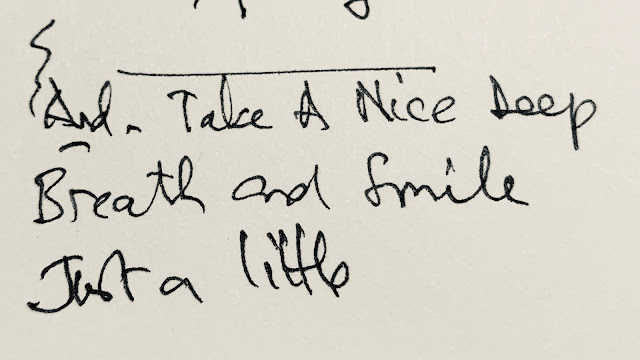 And. Take A Nice Deep
Breath and Smile
Just a little